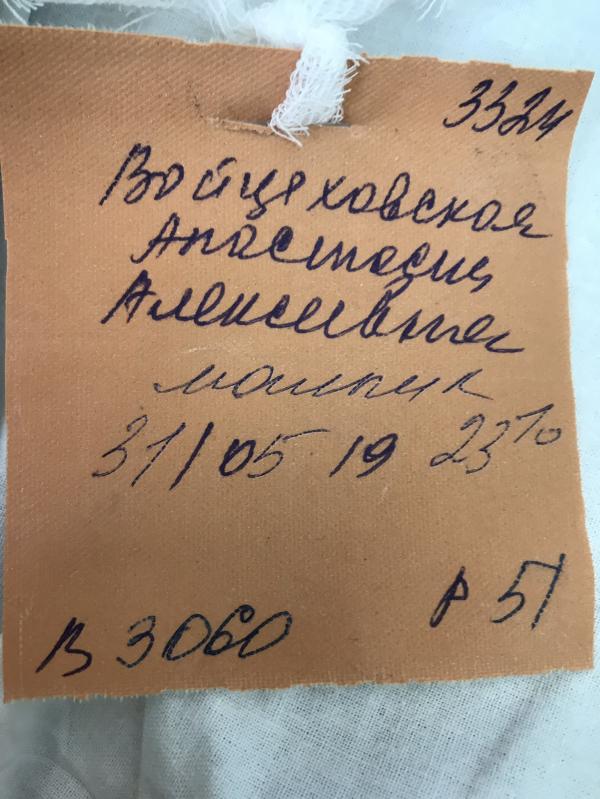 3324
Войцеховская
Анастасия
Алексеевна
мальчик
31/05 19 23 10
В 3060 Р 51